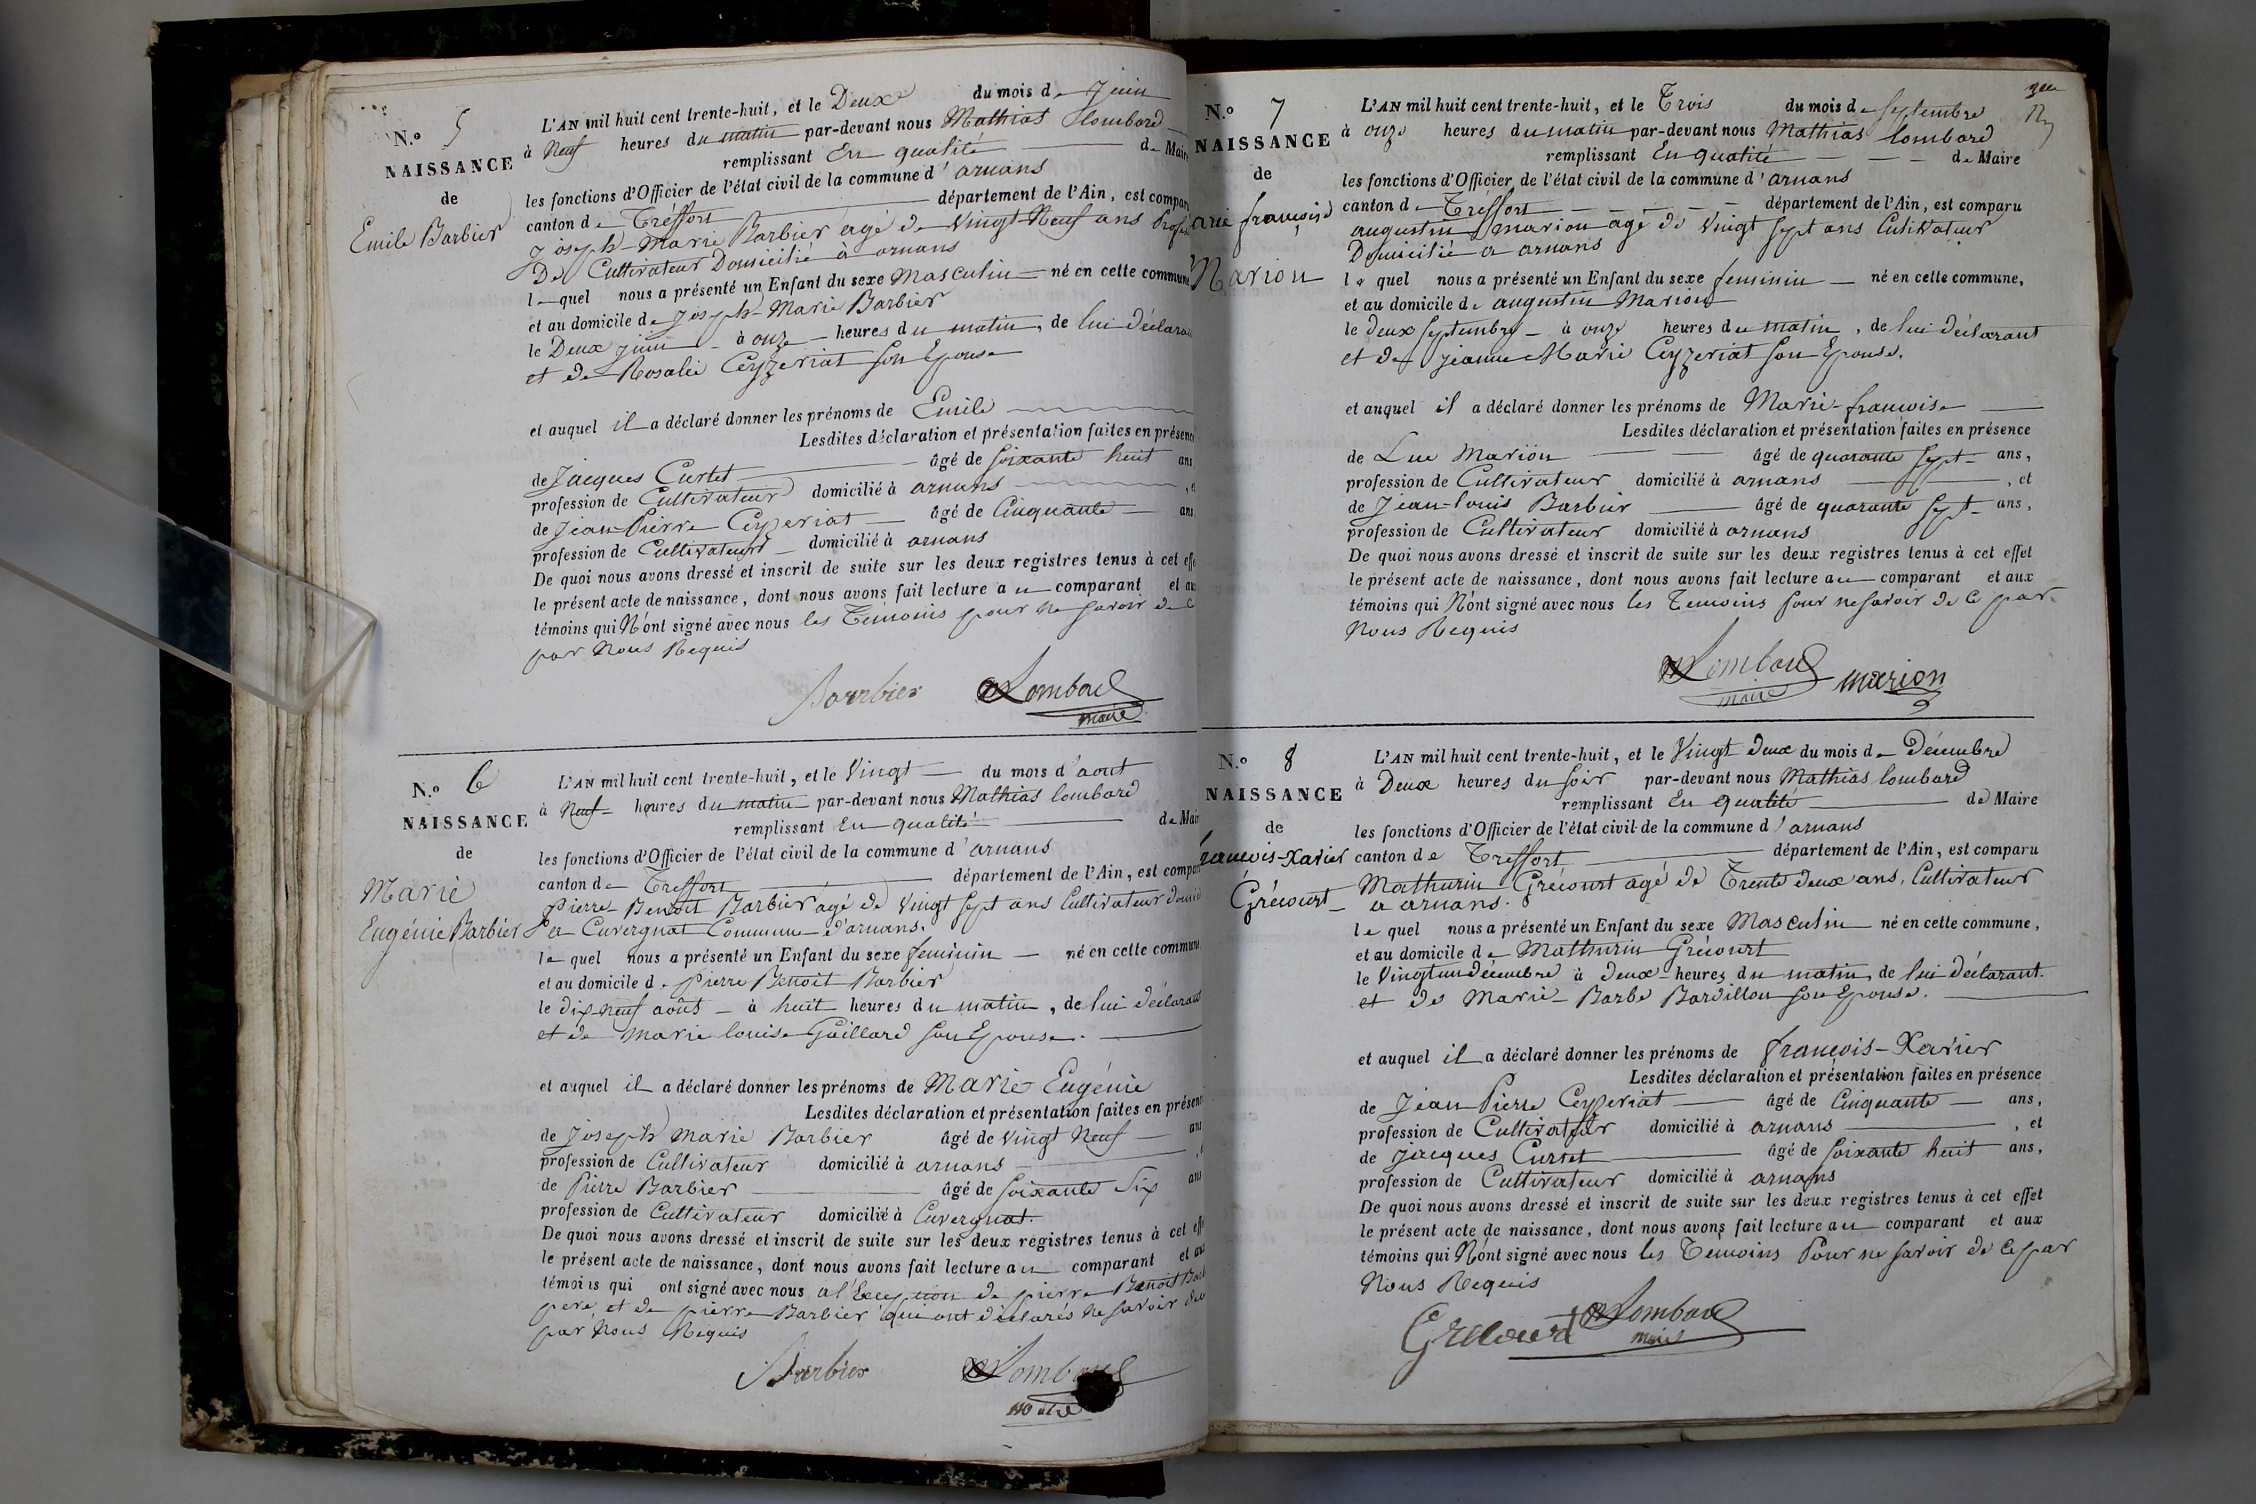 N.o 5
NAISSANCE
de
Emile Barbier
L'AN mil huit cent trente-huit, et le Deux du mois de Juin
à Neuf heures du matin par-devant nous Mathias Lombard
remplissant En qualité de Maire
les fonctions d'Officier de l'état civil de la commune d'arnans
canton de Tréffort département de l'Ain, est compar
Joseph-Marie Barbier agé de Vingt-Neuf ans Profes
De Cultivateur Domicilié à arnans
le quel nous a présenté un Enfant du sexe Masculin né en cette commune
et au domicile de Joseph-Marie Barbier
le Deux juin à onze heures du matin, de lui déclara
et de Rosalie Ceyzeriat son Epouse
et auquel il a déclaré donner les prénoms de Emile
Lesdites déclaration et présentation faites en présenc
de Jacques Curtet âgé de soixante huit ans
profession de Cultivateur domicilié à arnans , e
de Jean-Pierre Ceyzeriat âgé de Cinquante ans
profession de Cultivateur domicilié à arnans
De quoi nous avons dressé et inscrit de suite sur les deux registres tenus à cet effe
le présent acte de naissance, dont nous avons fait lecture au comparant et au
témoins qui N'ont signé avec nous les Témoins pour ne savoir de C
par Nous Requis
Barbier Lombard
maire
N.o 6
NAISSANCE
de
Marie
Eugénie Barbier
L'AN mil huit cent trente-huit, et le Vingt du mois d'aout
à Neuf heures du matin par-devant nous Mathias lombard
remplissant En qualité de Mair
les fonctions d'Officier de l'état civil de la commune d'arnans
canton de Treffort département de l'Ain, est compar
Pierre-Benoit Barbier agé de Vingt sept ans Cultivateur domici
a Cuvergnat Commune d'arnans.
le quel nous a présenté un Enfant du sexe feminin né en cette commune
et au domicile de pierre Benoit Barbier
le dix-neuf août à huit heures du matin, de lui déclarant
et de marie louise Gaillard son Epouse.
et auquel il a déclaré donner les prénoms de Marie Eugénie
Lesdites déclaration et présentation faites en présen
de Joseph marie Barbier âgé de vingt Neuf ans
profession de Cultivateur domicilié à arnans
de Pierre Barbier âgé de soixante Six ans
profession de Cultivateur domicilié à Cuvergnat.
De quoi nous avons dressé et inscrit de suite sur les deux registres tenus à cet eff
le présent acte de naissance, dont nous avons fait lecture au comparant et au
témoins qui ont signé avec nous a l'Exception de pierre Benoit Bar
pere, et de pierre Barbier qui ont déclarés ne savoir de
par Nous Requis
Barbier Lombard
maire
3me
N.o 7
NAISSANCE
de
arie françoise
Marion
L'AN mil huit cent trente-huit, et le Trois du mois de septembre
à onze heures du matin par-devant nous Mathias lombard
remplissant En qualité de Maire
les fonctions d'Officier de l'état civil de la commune d'arnans
canton de Tréffort département de l'Ain, est comparu
augustin marion agé de Vingt sept ans Cultivateur
Domicilié a arnans
le quel nous a présenté un Enfant du sexe feminin né en cette commune,
et au domicile de augustin Marion
le deux septembre à onze heures du matin, de lui déclarant
et de jeanne Marie Ceyzeriat son Epouse.
et auquel il a déclaré donner les prénoms de Marie-françoise
Lesdites déclaration et présentation faites en présence
de Luc Marion âgé de quarante sept ans,
profession de Cultivateur domicilié à arnans , et
de Jean-louis Barbier âgé de quarante sept ans,
profession de Cultivateur domicilié à arnans
De quoi nous avons dressé et inscrit de suite sur les deux registres tenus à cet effet
le présent acte de naissance, dont nous avons fait lecture au comparant et aux
témoins qui N'ont signé avec nous les Témoins pour ne savoir de Ce par
Nous Requis
Lombard marion
maire
N.o 8
NAISSANCE
de
françois-Xavier
Grécourt
L'AN mil huit cent trente-huit, et le Vingt deux du mois de Décembre
à Deux heures du soir par-devant nous Mathias lombard
remplissant En qualité de Maire
les fonctions d'Officier de l'état civil de la commune d'arnans
canton de Treffort département de l'Ain, est comparu
Mathurin Grécourt agé de Trente deux ans, Cultivateur
a arnans.
le quel nous a présenté un Enfant du sexe Masculin né en cette commune,
et au domicile de Mathurin Grécourt
le Vingt un décembre à deux heures du matin, de lui déclarant.
et de Marie-Barbe Bardillon son Epouse.
et auquel il a déclaré donner les prénoms de françois-Xavier
Lesdites déclaration et présentation faites en présence
de Jean Pierre Ceyzeriat âgé de Cinquante ans,
profession de Cultivateur domicilié à arnans , et
de jacques Curtet âgé de soixante huit ans,
profession de Cultivateur domicilié à arnans
De quoi nous avons dressé et inscrit de suite sur les deux registres tenus à cet effet
le présent acte de naissance, dont nous avons fait lecture au comparant et aux
témoins qui N'ont signé avec nous les Témoins Pour ne savoir de Ce par
Nous Requis
Grecourt Lombard
maire